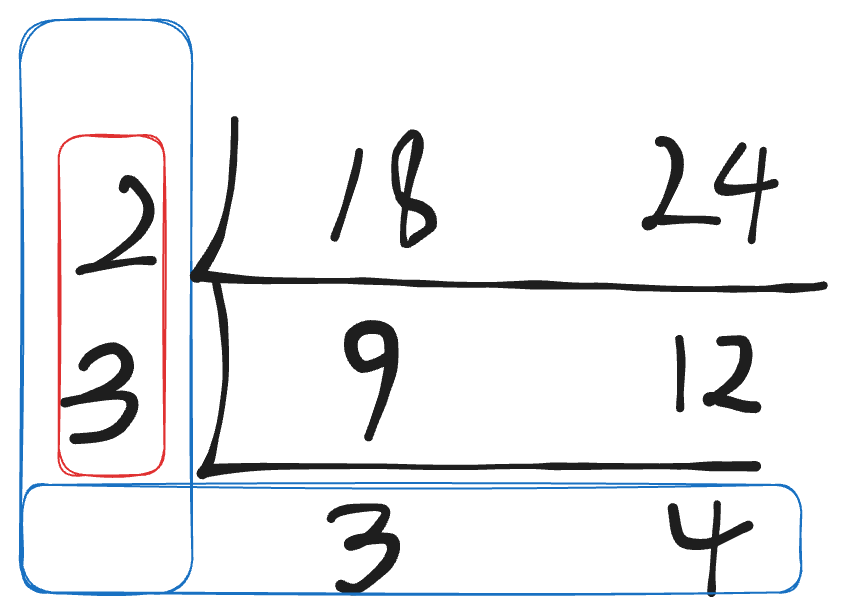 2 18 24
3 9 12
3 4